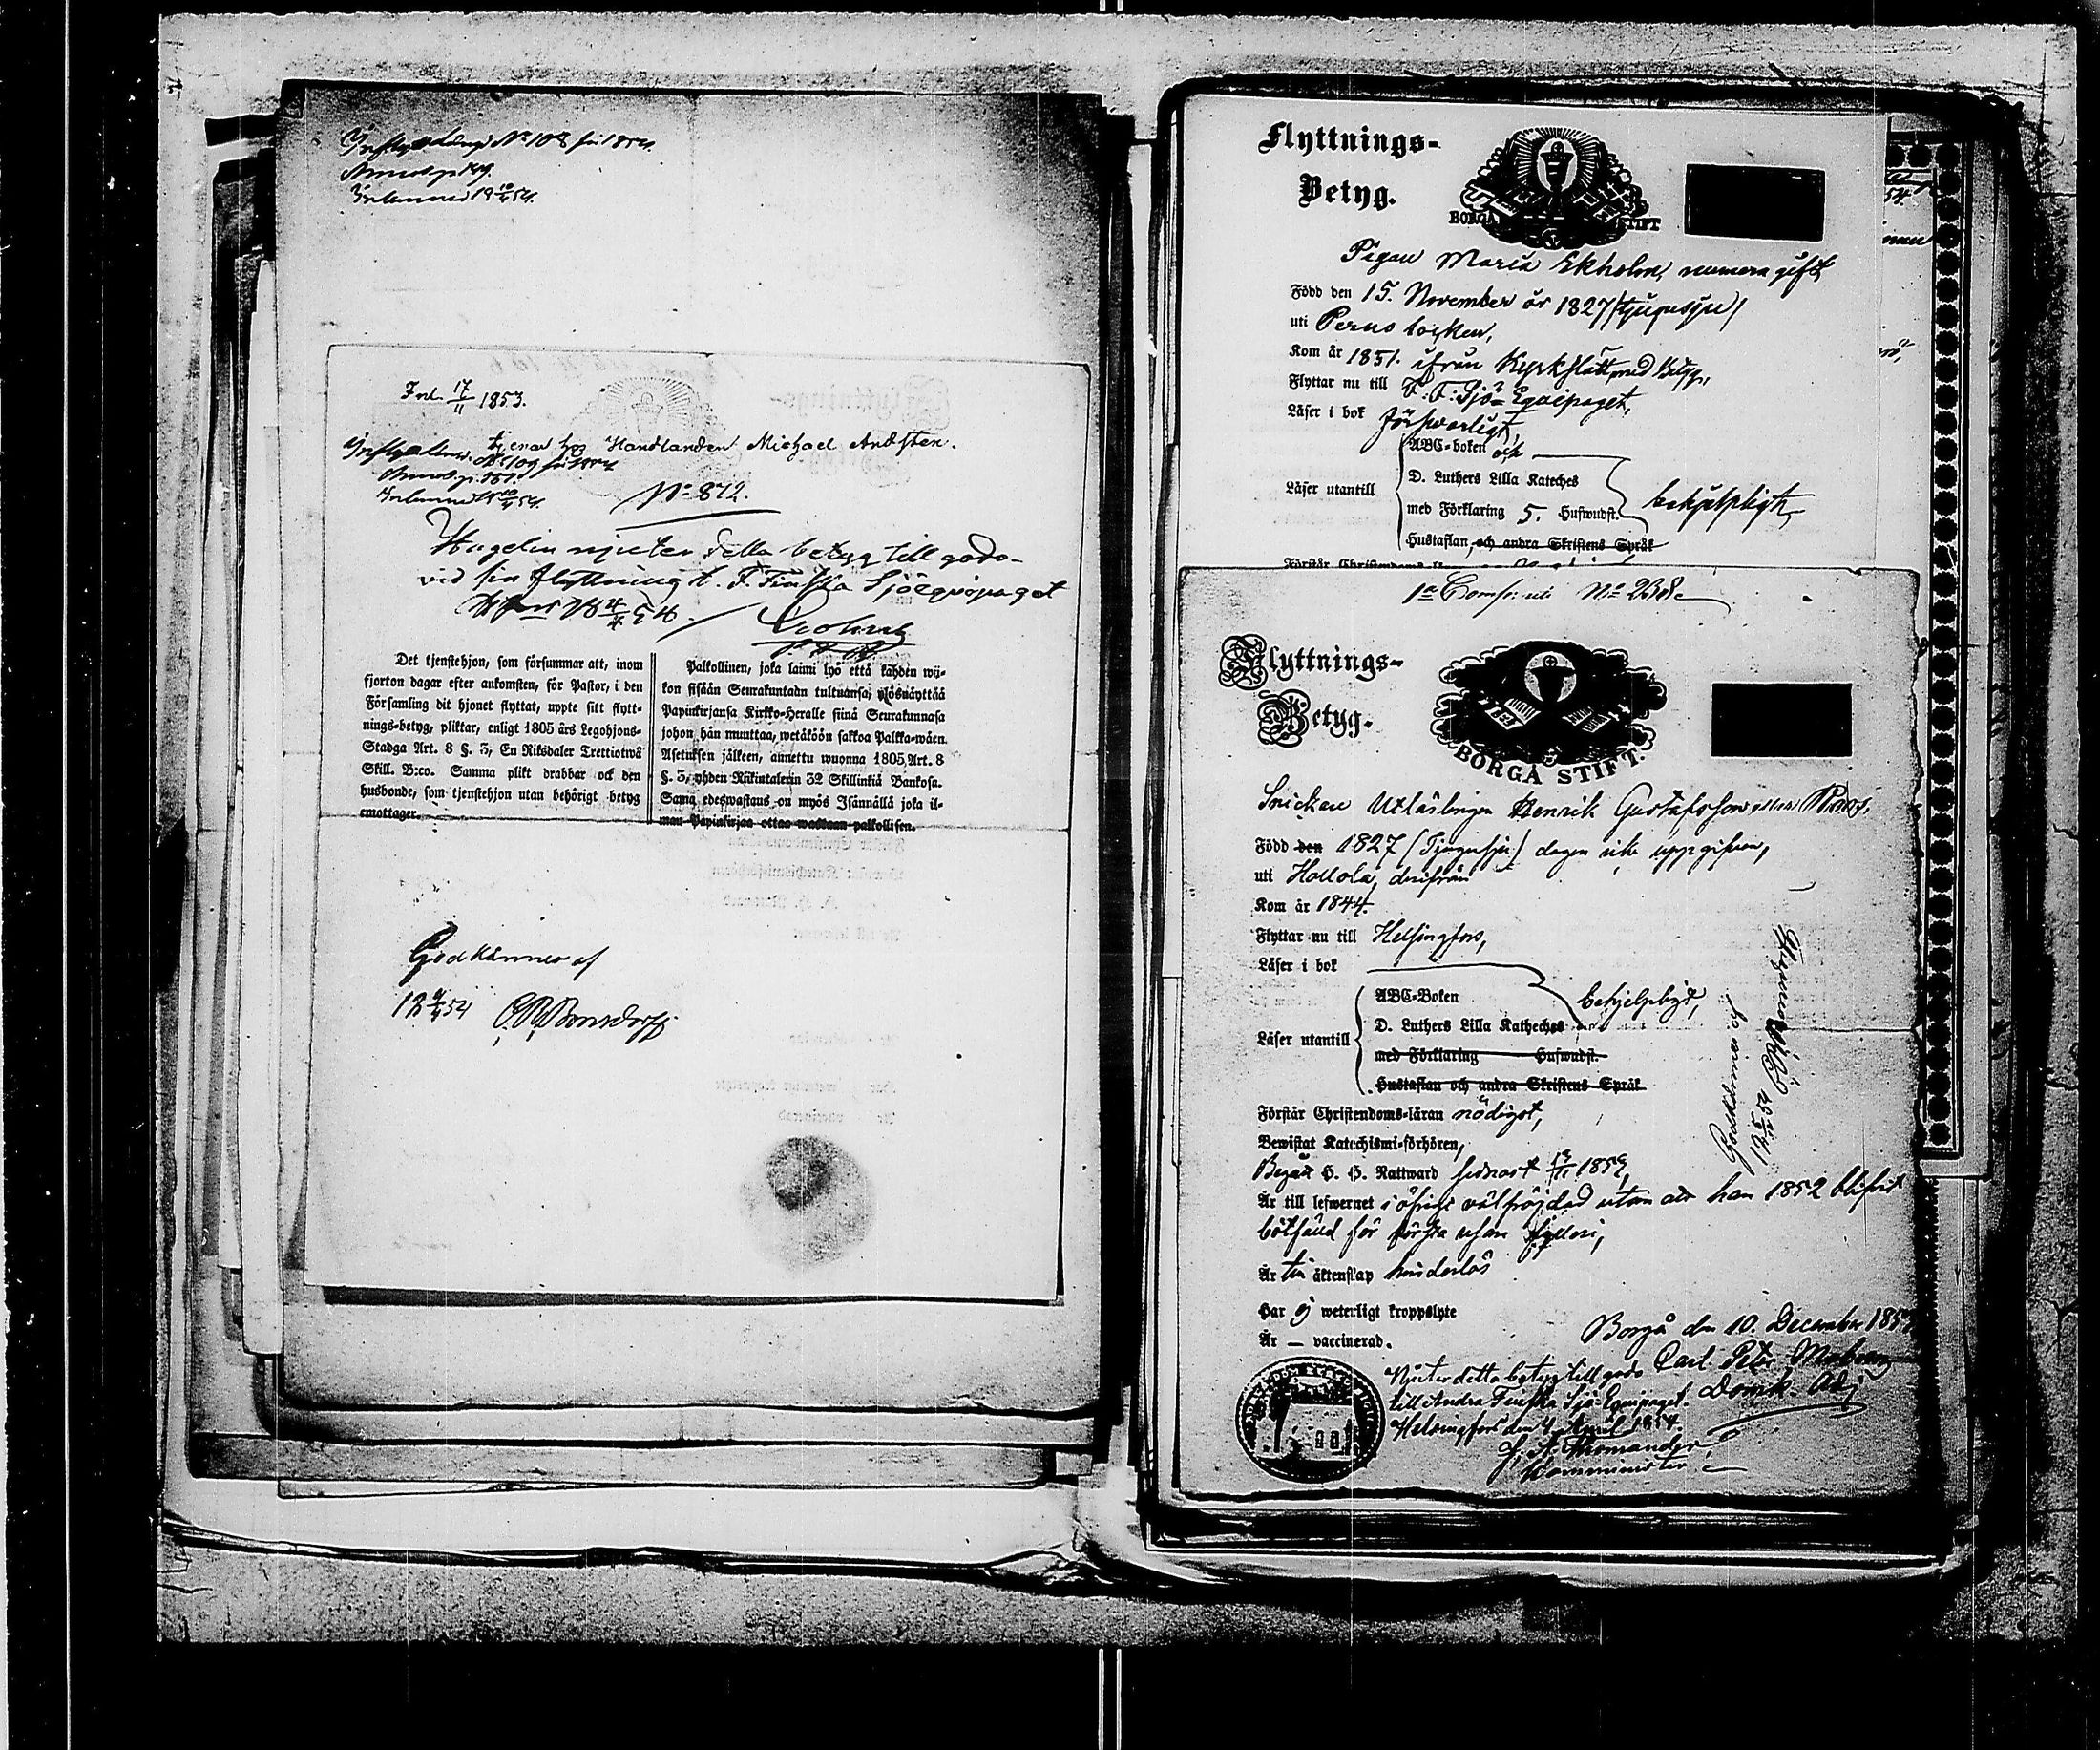 Inflyttnings N:o 108 för 1854.
p. 149.
Inlemnad 18 10/4 54.
Inl. 17/11 1853.
tjenar hos Handlanden Michael Andsten.
N:o 109 för 1854
p. 151.
Inlemnad 18 10/4 54.
N:o 872.
njuter detta betyg till godo
vid sin flyttning t. F. Finska Sjöequipaget
18 4/4 54.
Det tjenstehjon, som försummar att, inom
fjorton dagar efter ankomsten, för Pastor, i den
Församling dit hjonet flyttat, uppte sitt flytt-
nings-betyg, pliktar, enligt 1805 års Legohjons-
Stadga Art. 8 §. 3, En Riksdaler Trettiotwå
Skill. B:co. Samma plikt drabbar ock den
husbonde, som tjenstehjon utan behörigt betyg
emottager.
Palkollinen, joka laimi lyö että kahden wii-
kon sisään Seurakuntaan tultuansa, ylösnäyttää
Papinkirjansa Kirkko-Heralle siinä Seurakunnasa
johon hän muuttaa, wetäköön sakkoa Palkka-wäen
Asetuksen jälkeen, annettu wuonna 1805, Art. 8
§. 3, yhden Riikintalerin 32 Skillinkiä Bankosa.
Sama edeswastaus on myös Isännällä joka il-
man Papinkirjaa ottaa wastaan palkollisen.
Godkännes af
18 4/4 54 C. R. Bonsdorff
Flyttnings-
Betyg.
BORGÅ STIFT
Pigan Maria Ekholm, numera gift
Född den 15. November år 1827 (tjugusju)
uti Perno socken,
Kom år 1851. ifrån Kyrkslätt med Betyg,
Flyttar nu till F. F. Sjö-Equipaget,
Läser i bok försvarligt,
ABC-boken och
D. Luthers Lilla Kateches
Läser utantill
med Förklaring 5. Hufwudst.
behjelpligt
Hustaflan, och andra Skriftens Språk
Förstår Christendoms-
1a Comp: uti N:o
Flyttnings-
Betyg.
BORGÅ STIFT.
Snickare Utlärlingen Henrik Gustafsson
Född den 1827 (Tjugusju) dagen icke uppgifven,
uti Hollola, derifrån
Kom år 1844.
Flyttar nu till Helsingfors,
Läser i bok
ABC-Boken
behjelpligt,
D. Luthers Lilla Katheches
Läser utantill
med Förklaring Hufwudst.
Hustaflan och andra Skriftens Språk
Förstår Christendoms-läran nödigst,
Bewistat Katechismi-förhören,
Begått H. H. Nattward sednast 13/11 1853,
Är till lefwernet i öfrigt välfrejdad utom att han 1852 blifvit
bötfäld för första resan fylleri,
Är till äktenskap hinderlös
Har ej weterligt kroppslyte
Är — vaccinerad.
Borgå den 10. December 1853
Carl Peter Moberg
Domk. Adj
Njuter detta betyg till godo
till Andra Finska Sjö-Equipaget.
Helsingfors den 4 April 1854.
Komminister
Godkännes af
18 5/4 54 C. R. Bonsdorff